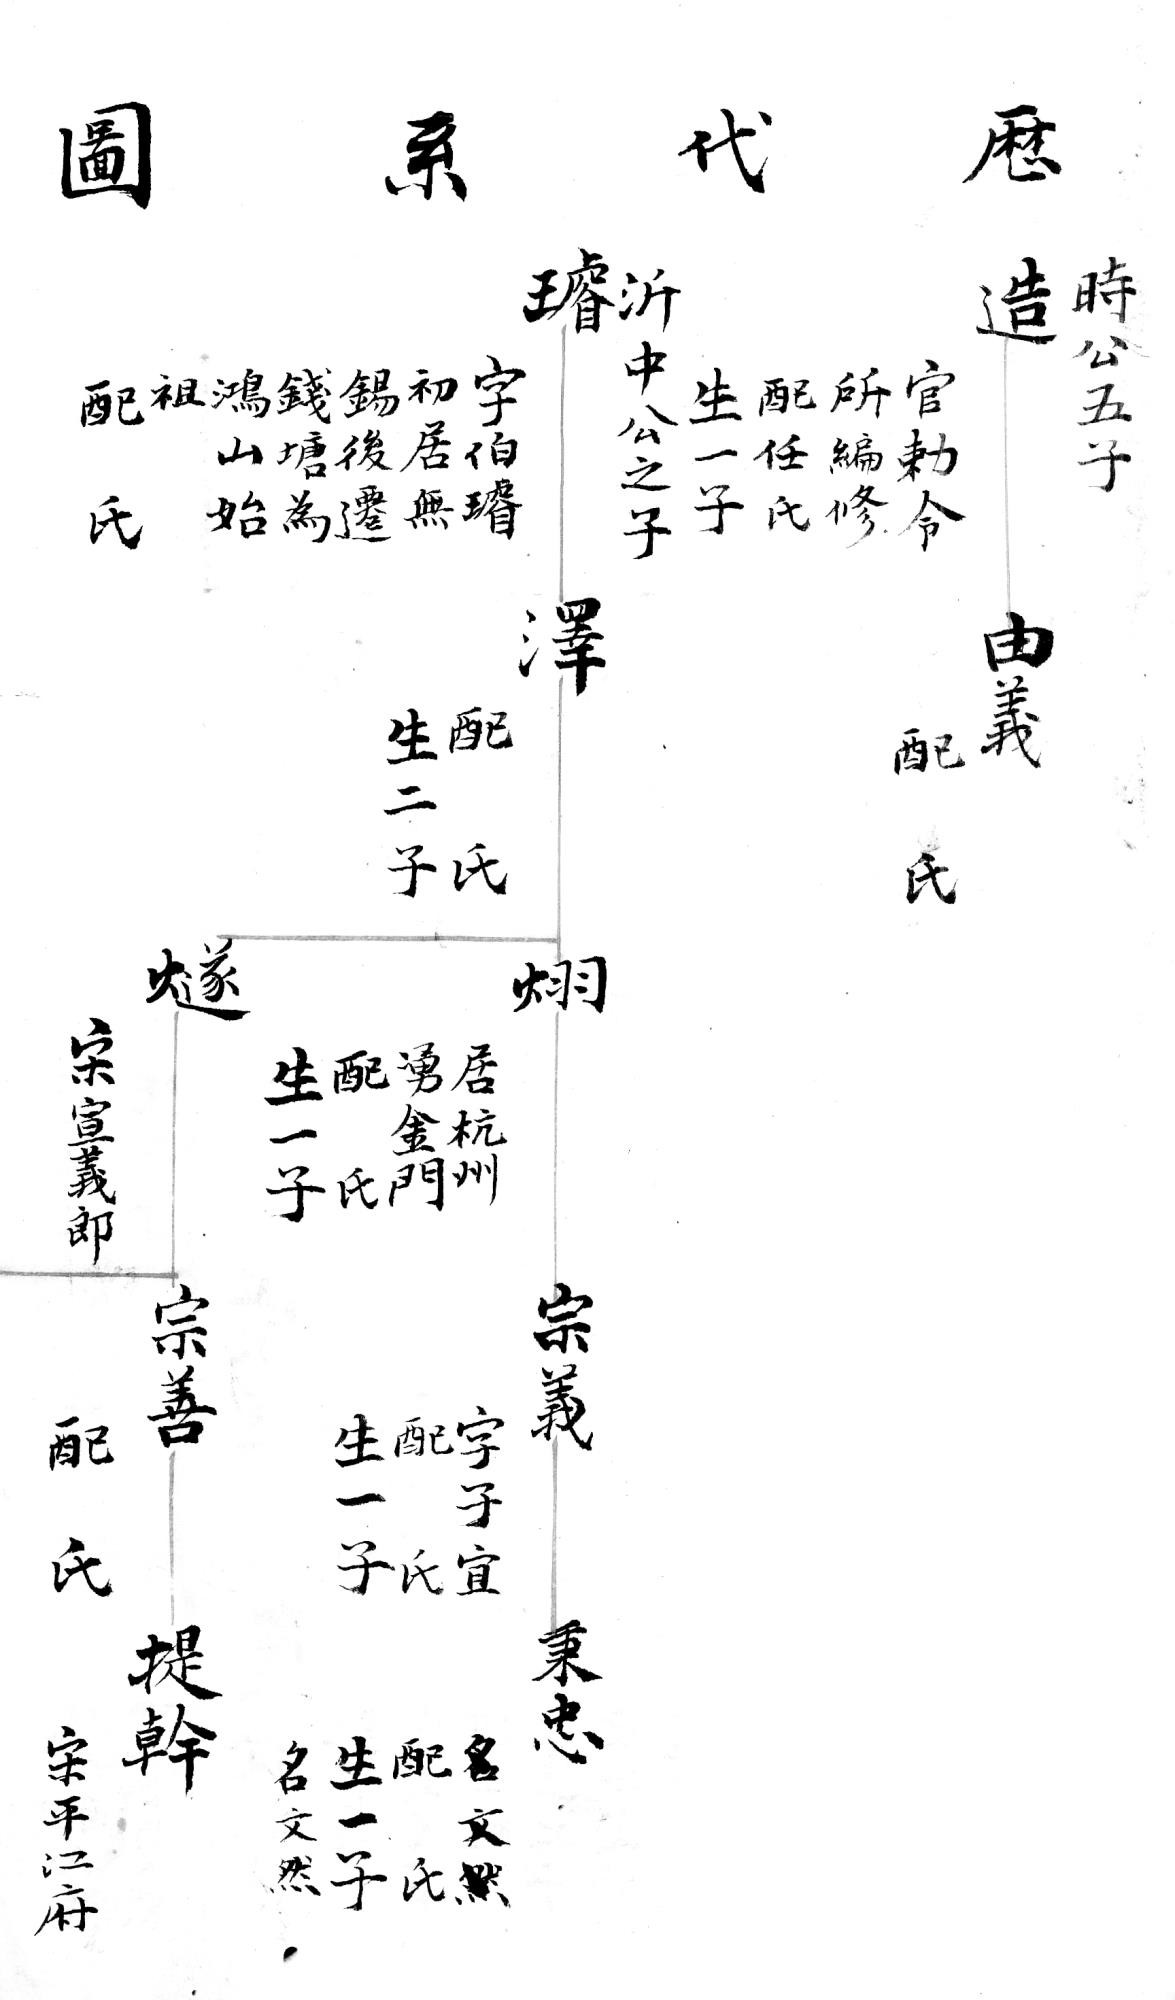 歷代系圖
時公五子
造
官勅令
所編修
配任氏
生一子
由義
配氏
沂中公之子
璿
字伯璿
初居無
錫後遷
錢塘為
鴻山始
祖
配氏
澤
配氏
生二子
焬
居杭州
湧金門
配氏
生一子
燧
宋宣義郎
宗義
字子宜
配氏
生一子
宗善
配氏
秉忠
名文
配氏
生一子
名文然
提幹
宋平江府